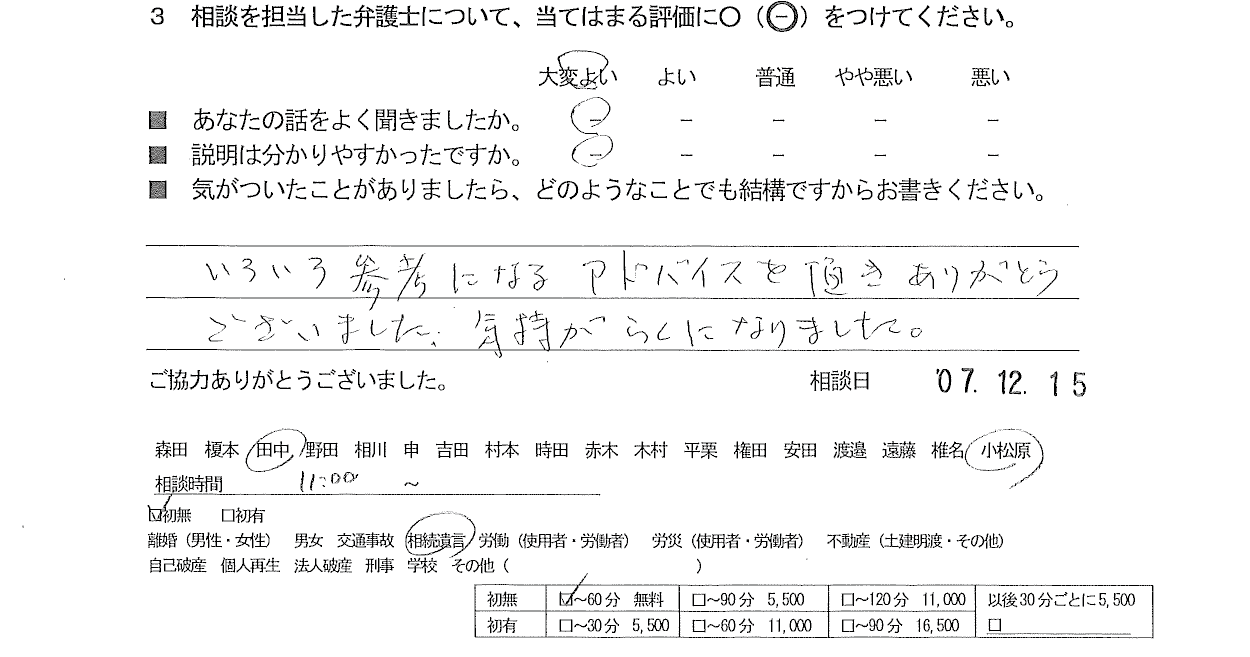 3 相談を担当した弁護士について、当てはまる評価に〇（㊀）をつけてください。
大変よい よい 普通 やや悪い 悪い
■ あなたの話をよく聞きましたか。 − − − − −
■ 説明は分かりやすかったですか。 − − − − −
■ 気がついたことがありましたら、どのようなことでも結構ですからお書きください。
いろいろ参考になるアドバイスを頂きありがとう
ございました、気持がらくになりました。
ご協力ありがとうございました。 相談日 '07. 12. 15
森田 榎本 田中 野田 相川 申 吉田 村本 時田 赤木 木村 平栗 権田 安田 渡邉 遠藤 椎名 小松原
相談時間 11:00 ～
☑初無 □初有
離婚（男性・女性） 男女 交通事故 相続遺言 労働（使用者・労働者） 労災（使用者・労働者） 不動産（土建明渡・その他）
自己破産 個人再生 法人破産 刑事 学校 その他（ ）
初無 ☑～60分 無料 □～90分 5,500 □～120分 11,000 以後30分ごとに5,500
初有 □～30分 5,500 □～60分 11,000 □～90分 16,500 □